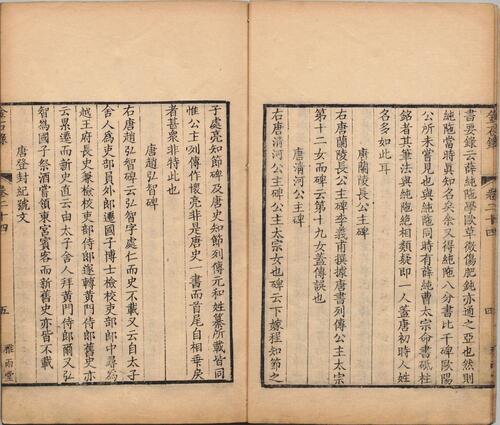 書要錄云薛純陁學歐草微傷肥鈍亦通之亞也然則
純陁當時眞知名矣余又得純陁八分書比干碑歐陽
公所未嘗見也與純陁同時有薛純曹太宗命書砥柱
銘者其筆法與純陁絶相類疑即一人蓋唐初時人姓
名多如此耳
唐蘭陵長公主碑
右唐蘭陵長公主碑李義甫撰據唐書列傳公主太宗
第十二女而碑云第十九女蓋傳誤也
唐淸河公主碑
右唐淸河公主碑公主太宗女也碑云下嫁程知節之
金石錄
卷二十四
四
子處亮知節碑及唐史知節列傳元和姓纂所載皆同
惟公主列傳作懷亮非是唐史一書而首尾自相乖戾
者甚衆非特此也
唐趙弘智碑
右唐趙弘智碑云弘智字處仁而史不載又云自太子
舍人爲吏部員外郎遷國子博士檢校吏部郎中尋爲
越王府長史兼檢校吏部侍郎遂轉黃門侍郎舊史亦
云累遷而新史直云由太子舍人拜黃門侍郎爾又弘
智爲國子祭酒嘗領東宮賓客而新舊史亦皆不載
唐登封紀號文
金石錄
卷二十四
五
雅雨堂